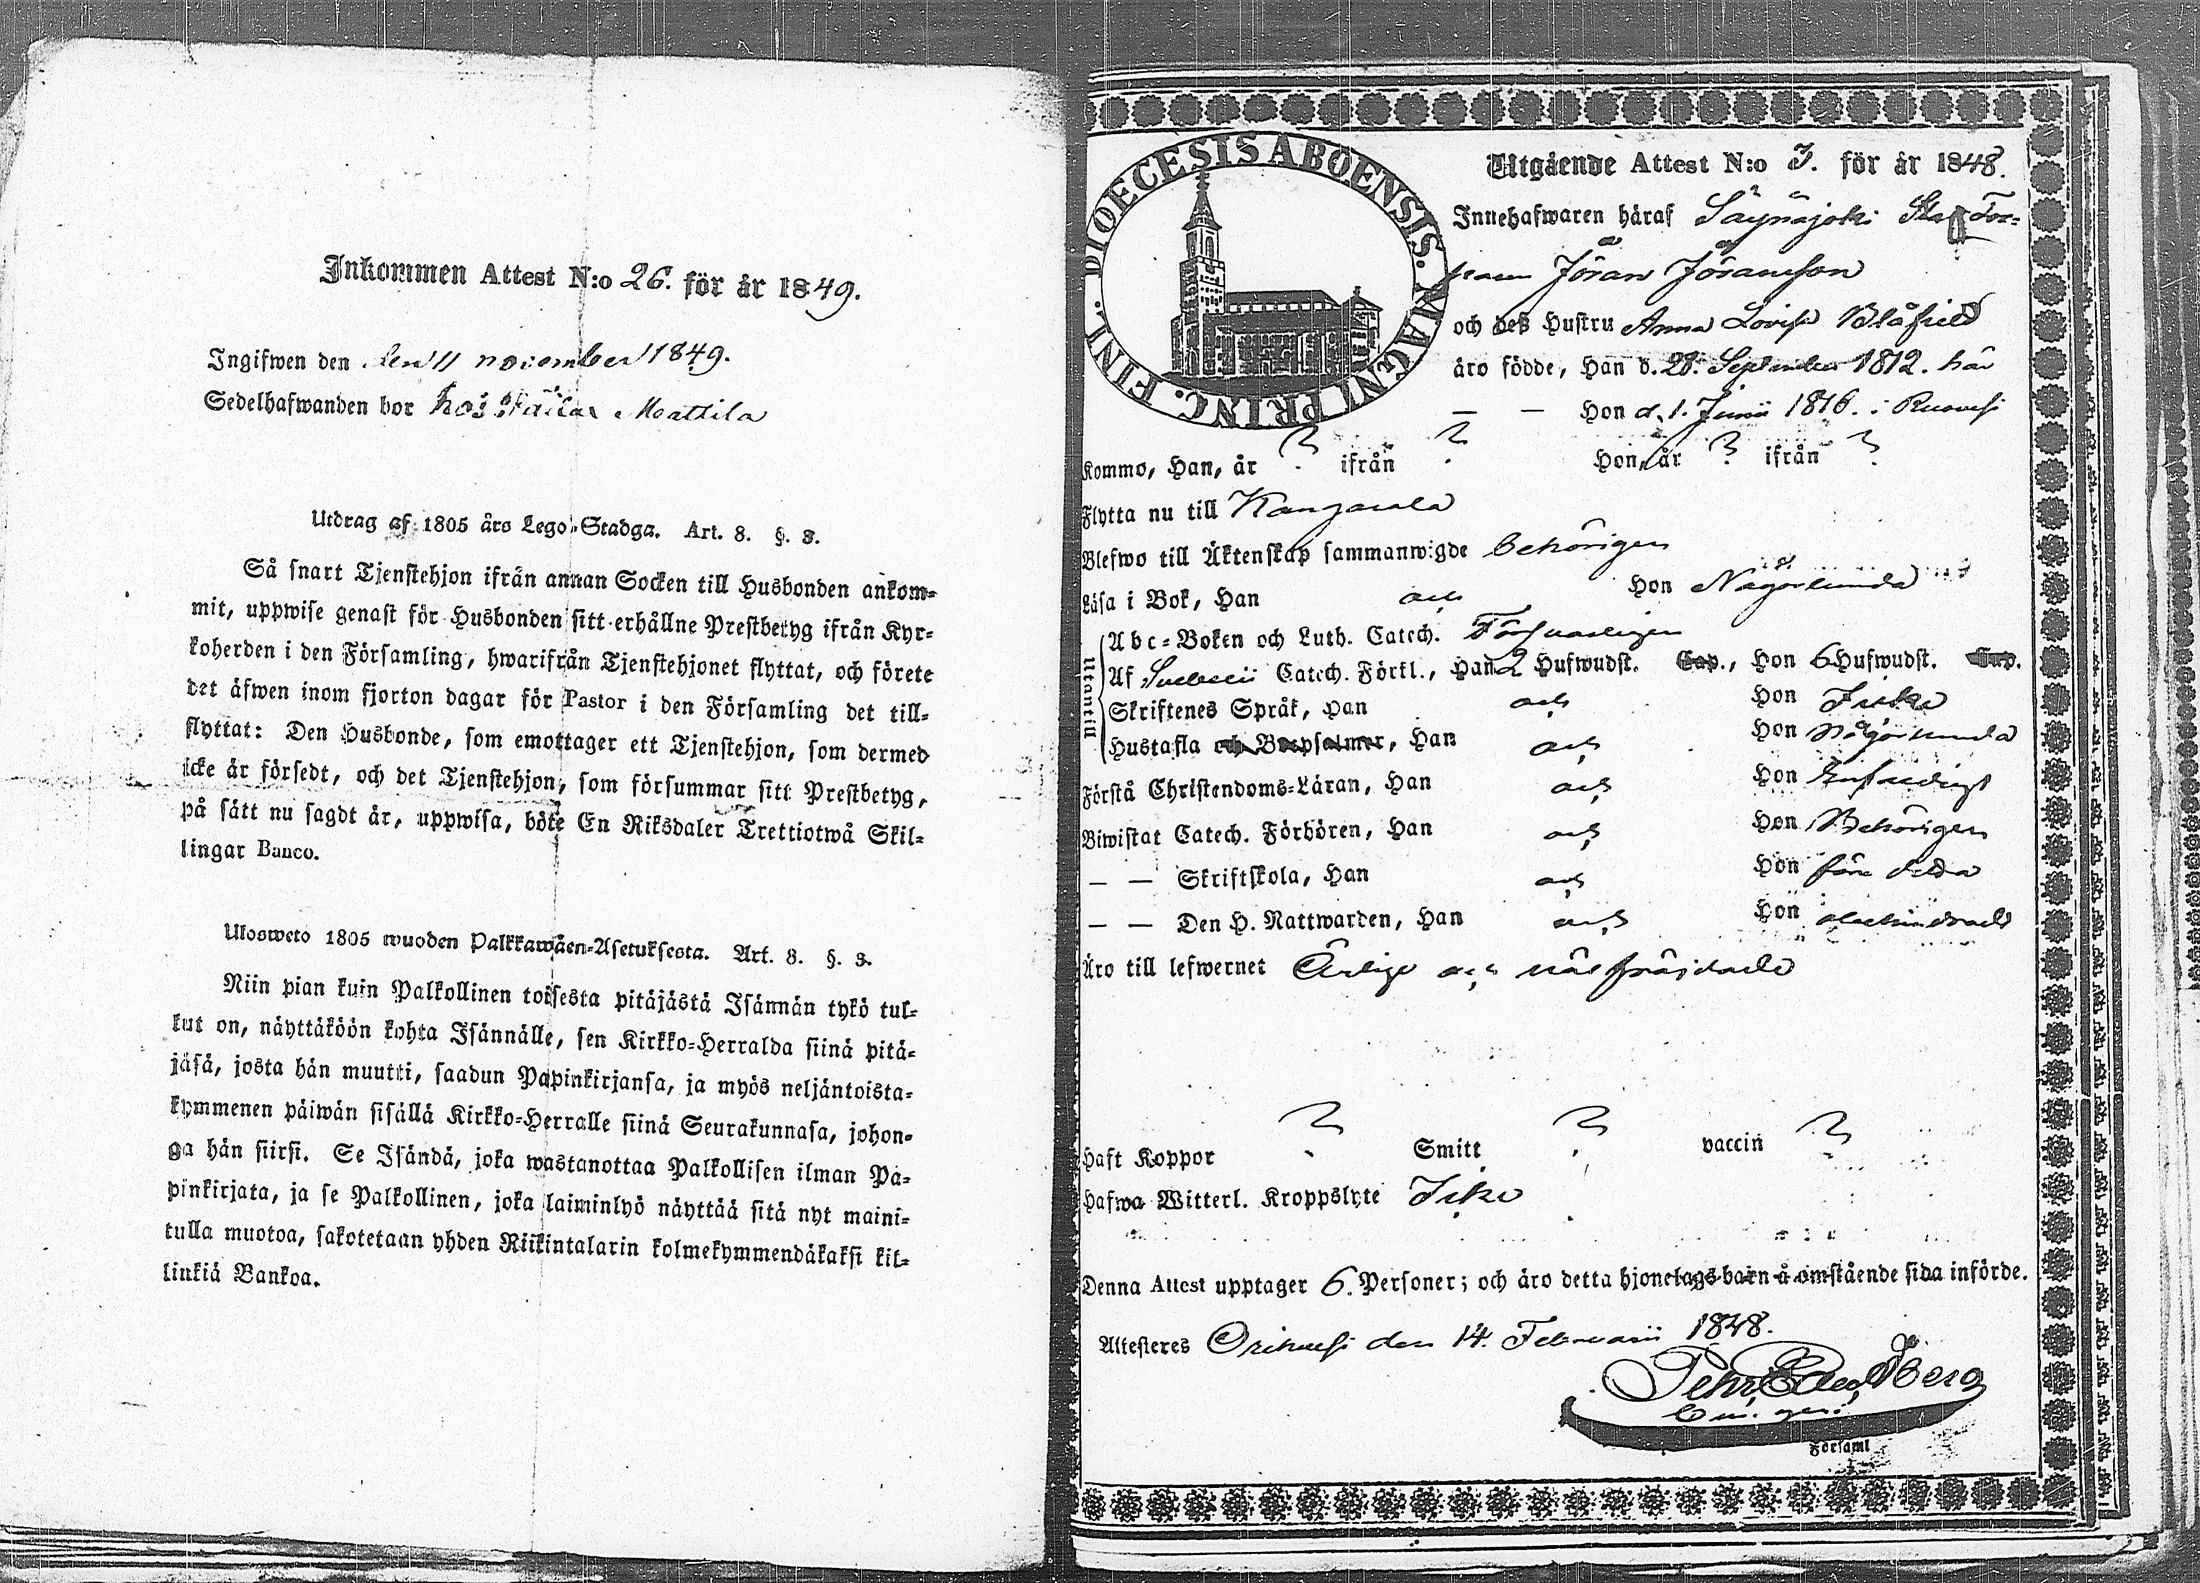 Inkommen Attest N:o 26. för år 1849.
Ingifwen den den 11 november 1849.
Sedelhafwanden bor hos Mattila
Utdrag af 1805 års Lego-Stadga. Art. 8. §. 3.
Så snart Tjenstehjon ifrån annan Socken till Husbonden ankom-
mit, uppwise genast för Husbonden sitt erhållne Prestbetyg ifrån Kyr-
koherden i den Församling, hwarifrån Tjenstehjonet flyttat, och förete
det äfwen inom fjorton dagar för Pastor i den Församling det till-
flyttat: Den Husbonde, som emottager ett Tjenstehjon, som dermed
icke är försedt, och det Tjenstehjon, som försummar sitt Prestbetyg,
på sätt nu sagdt är, uppwisa, böte En Riksdaler Trettiotwå Skil-
lingar Banco.
Ulosweto 1805 wuoden Palkkawäen-Asetuksesta. Art. 8. §. 3.
Niin pian kuin Palkollinen toisesta pitäjästä Isännän tykö tul-
lut on, näyttäköön kohta Isännälle, sen Kirkko-Herralda siinä pitä-
jäsä, josta hän muutti, saadun Papinkirjansa, ja myös neljäntoista-
kymmenen päiwän sisällä Kirkko-Herralle siinä Seurakunnasa, johon-
ga hän siirsi. Se Isändä, joka wastanottaa Palkollisen ilman Pa-
pinkirjata, ja se Palkollinen, joka laiminlyö näyttää sitä nyt maini-
tulla muotoa, sakotetaan yhden Riikintalarin kolmekymmendäkaksi kil-
linkiä Bankoa.
DIOECESIS ABOENSIS. MAGNI PRINC. FINL.
Utgående Attest N:o 3. för år 1848.
Innehafwaren häraf Säynäjoki Tor-
Jöran Jöransson
och deß Hustru Anna Lovisa Blåfield
äro födde, Han d. 28. September 1812. här
— — Hon d. 1. Junii 1816. i Ruovesi
Kommo, Han, år ? ifrån ? Hon, år ? ifrån ?
Flytta nu till Kangasala
Blefwo till Äktenskap sammanwigde behörigen
Läsa i Bok, Han och Hon Någorlunda
Utantill
Abc-Boken och Luth. Catech. Förswarligen
Af Svebelii Catech. Förkl., Han 2 Hufwudst. Cap., Hon 6 Hufwudst. Cap.
Skriftenes Språk, Han och Hon Icke
Hustafla och Botpsalmer, Han och Hon Någorlunda
Förstå Christendoms-Läran, Han och Hon Enfaldigt
Biwistat Catech. Förhören, Han och Hon Behörigen
— — Skriftskola, Han och Hon
— — Den H. Nattwarden, Han och Hon
Äro till lefwernet Ärlige och wäl fräjdade
Haft Koppor ? Smitt ? vaccin ?
Hafwa Witterl. Kroppslyte Icke
Denna Attest upptager 6. Personer; och äro detta hjonelags barn å omstående sida införde.
Attesteres Orihvesi den 14. Februarii 1848.
Pehr Berg
Församl